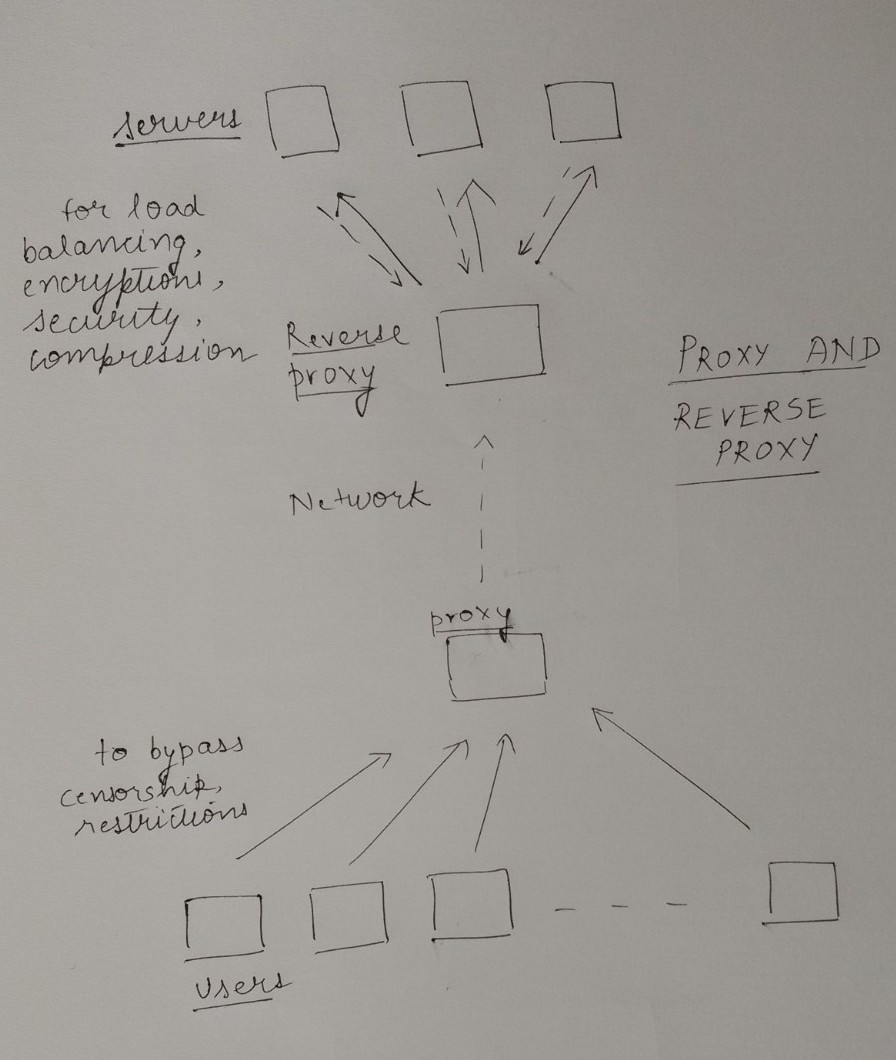 servers
for load
balancing,
encryptions,
security,
compression
Reverse
proxy
PROXY AND
REVERSE
PROXY
Network
proxy
to bypass
censorship,
restrictions
Users